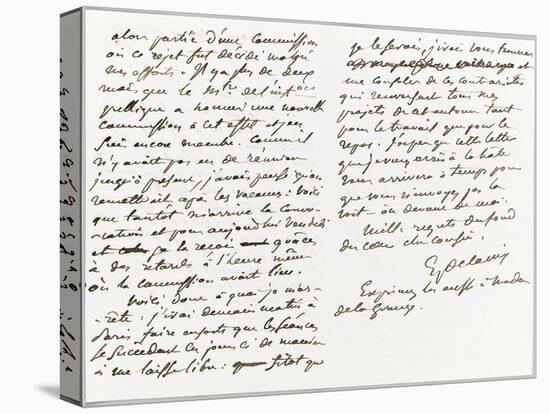 alors partie d'une Commission
où ce rejet fut décidé malgré
mes efforts. Il y a plus de deux
mois que le Mre. de l'instron
publique a nommé une nouvelle
Commission à cet effet et j'en
suis encore membre. Comme il
n'y avait pas eu de réunion
jusqu'à présent, j'avais pensé qu'on
remettrait après les vacances: Voilà
que tantôt m'arrive la Convo-
cation et pour aujourd'hui Vendredi
et je la reçois grâces
à des retards à l'heure même
où la commission avait lieu.
Voici donc à quoi je m'ar-
rête: j'irai demain matin à
Paris faire en sorte que les séances
se succèdent ces jours ci de manière
à me laisser libre: sitôt que
je le saurai, j'irai vous trouver
et
me consoler de ces contrariétés
qui renversent tous mes
projets de cet automne tant
pour le travail que pour le
repos. J'espère que cette lettre
que je vous écris à la hâte
vous arrivera à temps pour
que vous n'envoyiez pas la
voiture au devant de moi.
Mille regrets du fond
du cœur cher cousin.
EugDelacroix
Exprimez les aussi à Madame
de la Grange.